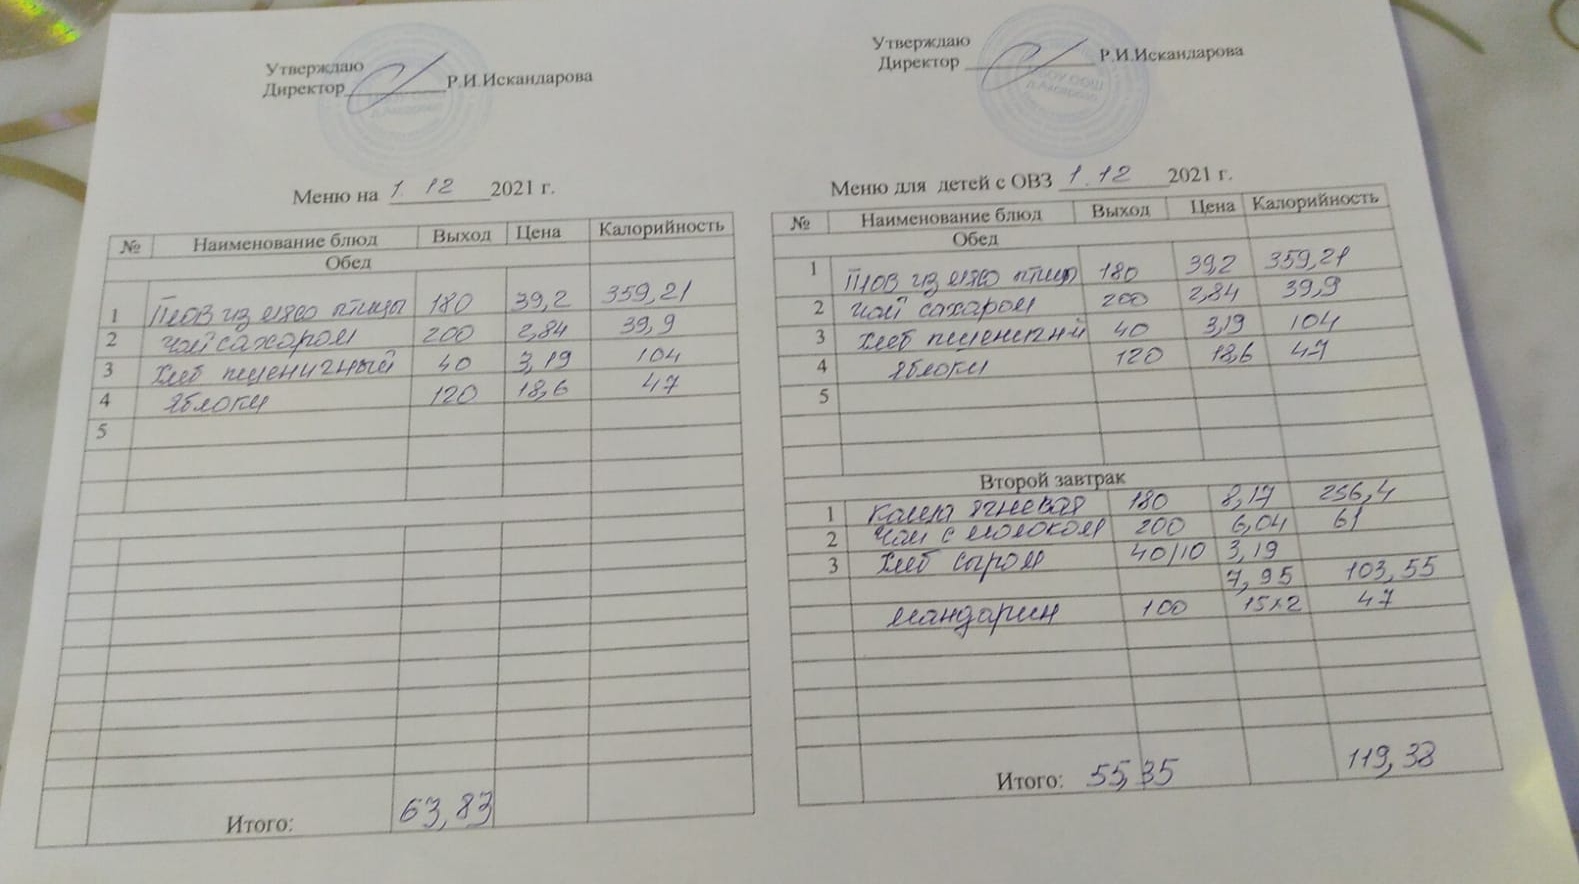 Утверждаю
Директор Р.И.Искандарова
Меню на 1.12 2021 г.
№ Наименование блюд Выход Цена Калорийность
Обед
1 Плов из мясо птицы 180 39,2 359,21
2 Чай сахаром 200 2,84 39,9
3 Хлеб пшеничный 40 3,19 104
4 Яблоки 120 18,6 47
5
Итого: 63,83
Утверждаю
Директор Р.И.Искандарова
Меню для детей с ОВЗ 1.12 2021 г.
№ Наименование блюд Выход Цена Калорийность
Обед
1 Плов из мясо птиц 180 39,2 359,21
2 Чай сахаром 200 2,84 39,9
3 Хлеб пшеничный 40 3,19 104
4 Яблоки 120 18,6 47
5
Второй завтрак
1 Каша ячневая 180 8,17 256,4
2 Чай с молоком 200 6,04 61
3 Хлеб сыром 40/10 3,19
7,95 103,55
мандарин 100 15х2 47
Итого: 55,35 119,38